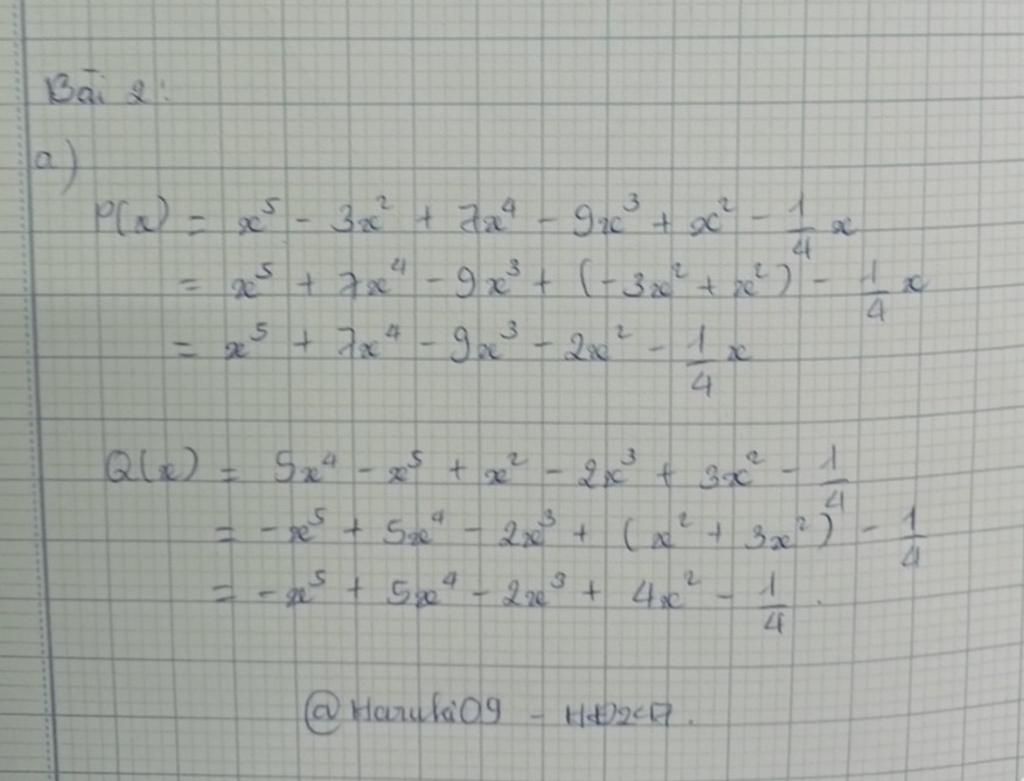 Bài 2:
a)
P(x) = x⁵ - 3x² + 7x⁴ - 9x³ + x² - 1/4 x
= x⁵ + 7x⁴ - 9x³ + (-3x² + x²) - 1/4 x
= x⁵ + 7x⁴ - 9x³ - 2x² - 1/4 x
Q(x) = 5x⁴ - x⁵ + x² - 2x³ + 3x² - 1/4
= -x⁵ + 5x⁴ - 2x³ + (x² + 3x²) - 1/4
= -x⁵ + 5x⁴ - 2x³ + 4x² - 1/4.
@Haruki09 -